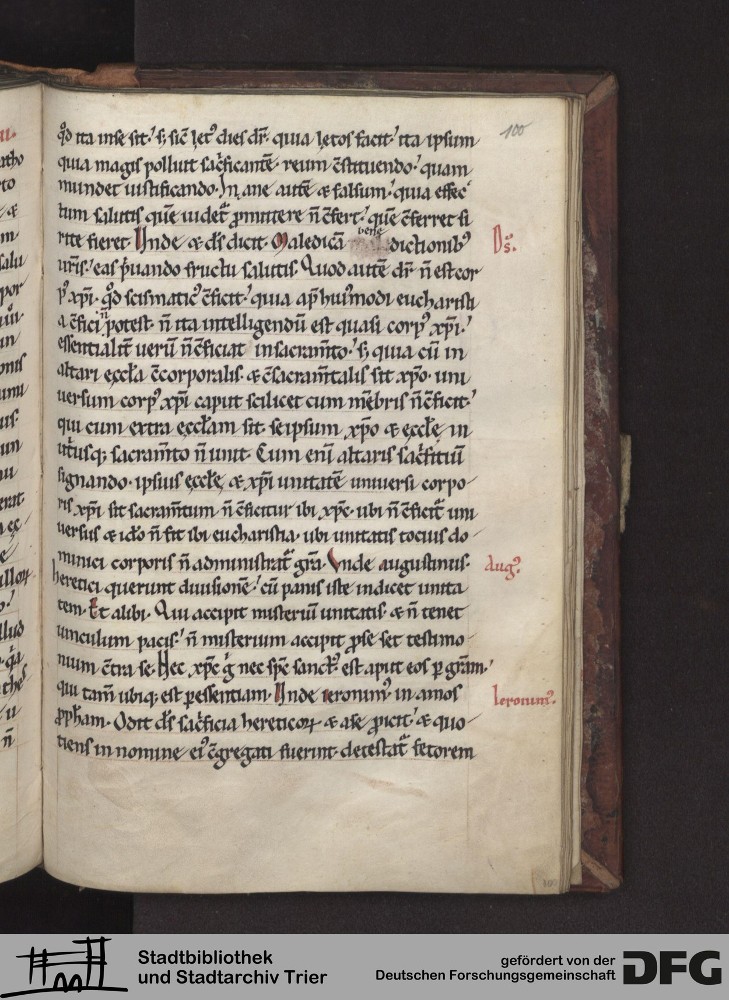 100
qd̉ ita inse sit.' s; sic̄ letꝰ dies dr̄. quia letos facit.' ita ipsum
quia magis polluit sac̓ficantē. reum c̄stituendo.' quam
mundet iustificando. In ane autē & falsum.' quia effec
tum salutis quē uidet̄ ꝓmittere n̄ c̄fert.' quē c̄ferret si
rite fieret. Unde & dn̄s dicit. Maledicā benedictionibꝰ
Dn̄s.
uris̄.' eas p̓uando fructu salutis. Quod autē dr̄ n̄ est cor
pꝰ xp̄i. qd̉ scismaticꝰ c̄ficit.' quia ap̄ huiꝰmodi eucharisti
a c̄fici n̄ potest. n̄ ita intelligendū est quasi corpꝰ xp̄i.'
essentialit̄ uerū n̄ c̄ficiat in sacram̄to.' s; quia cū in
altari ęccła c̄corporalis. & c̄sacram̄talis sit xp̄o. uni
uersum corpꝰ xp̄i caput scilicet cum mēbris n̄ c̄ficit.'
qui cum extra ęccłam sit. seipsum xp̄o & ęccłę in
utusq; sacram̄to n̄ unit. Cum eni altaris sac̓ficiū
signando. ipsius ęccłę & xp̄i unitatē uniuersi corpo
ris xp̄i sit sacram̄tum. n̄ c̄ficitur ibi xp̄c. ubi n̄ c̄ficit̄ uni
uersus. & ido n̄ fit ibi eucharistia. ubi unitatis tocius do
minici corporis n̄ administrat̄ gr̄a. Vnde augustinus.
Augꝰ.
heretici querunt diuisionē.' cū panis iste indicet unita
tem. Et alibi. Qui accipit misteriū unitatis. & n̄ tenet
uinculum pacis.' n̄ misterium accipit ꝓ se set testimo
nium c̄tra se. Hec xp̄c g̓ nec sp̄c sanctꝰ est aput eos ꝑ gr̄am.'
qui tam̄ ubiq; est ꝑ essentiam. Unde ieronimꝰ in amos
Ieronimꝰ.
ꝓph̄am. Odit ds̄ sac̓ficia hereticoꝝ & a se ꝓicit.' & quo
tiens in nomine eiꝰ c̄gregati fuerint. detestat̄ fetorem
Stadtbibliothek
und Stadtarchiv Trier
gefördert von der
Deutschen Forschungsgemeinschaft
DFG